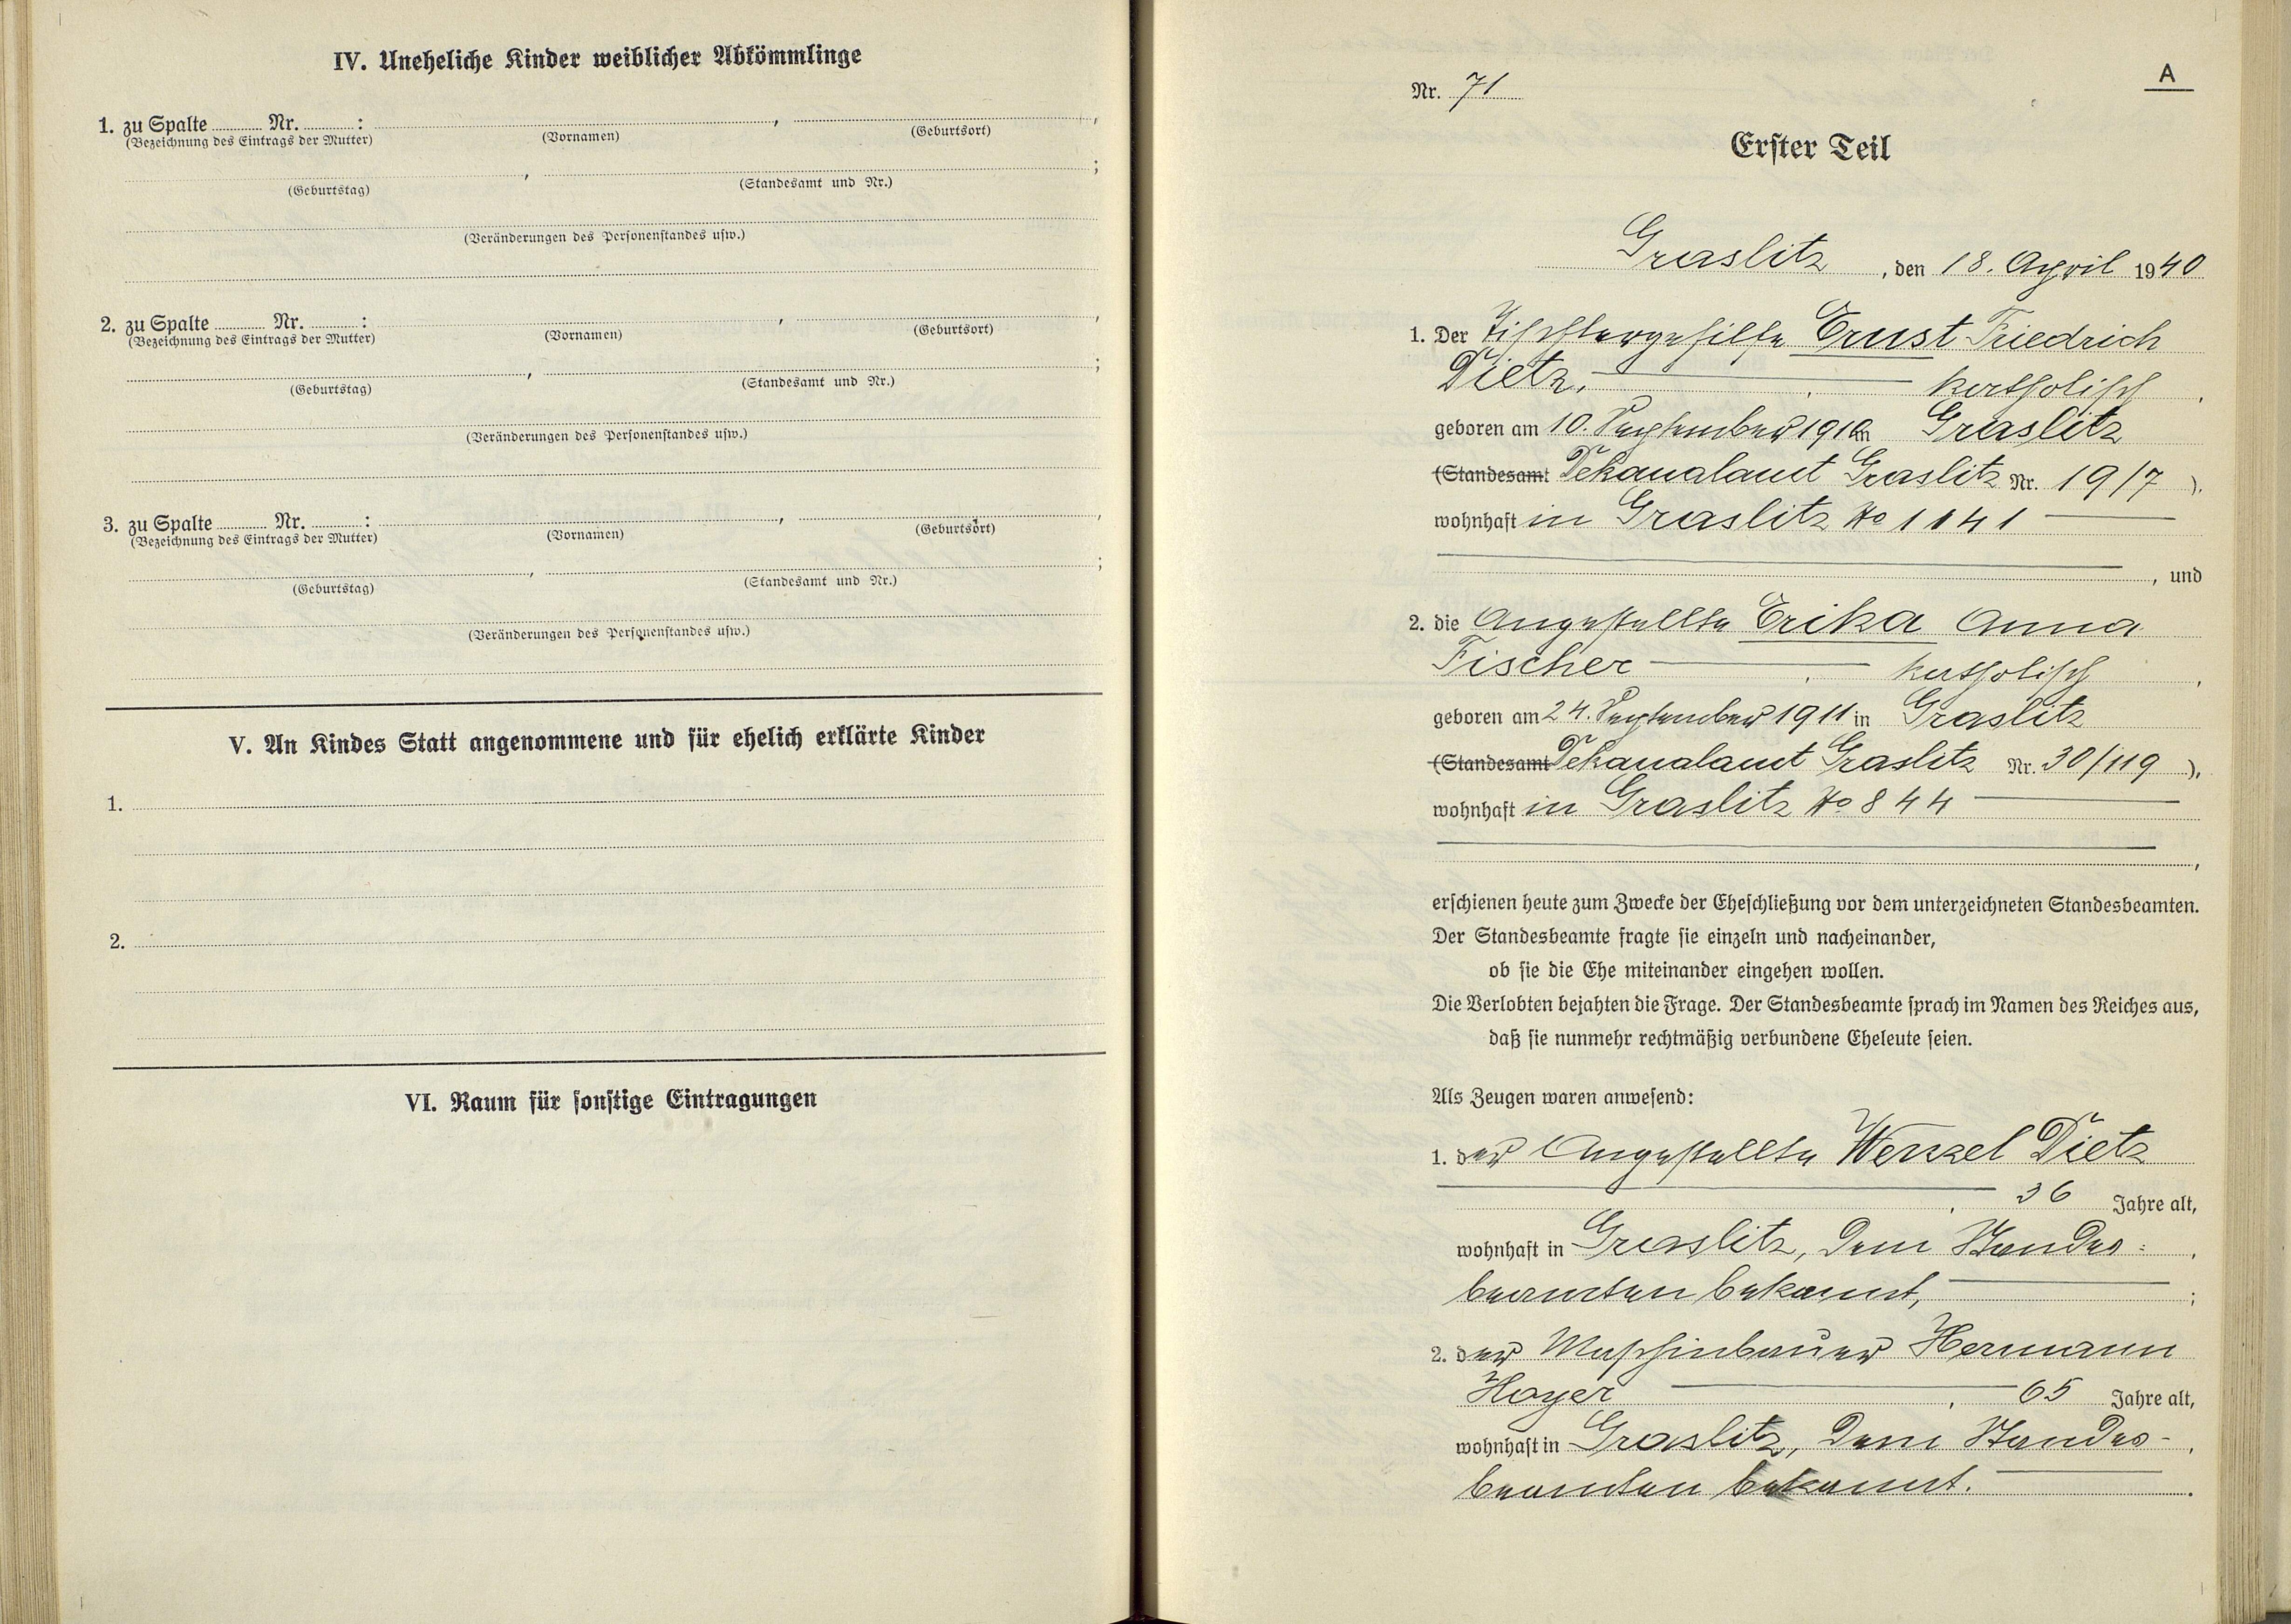 IV. Uneheliche Kinder weiblicher Abkömmlinge
1. zu Spalte ........ Nr. ........ : ........ , ........ ,
(Bezeichnung des Eintrags der Mutter) (Vornamen) (Geburtsort)
........ , ........ ;
(Geburtstag) (Standesamt und Nr.)
(Veränderungen des Personenstandes usw.)
2. zu Spalte ........ Nr. ........ : ........ , ........ ,
(Bezeichnung des Eintrags der Mutter) (Vornamen) (Geburtsort)
........ , ........ ;
(Geburtstag) (Standesamt und Nr.)
(Veränderungen des Personenstandes usw.)
3. zu Spalte ........ Nr. ........ : ........ , ........ ,
(Bezeichnung des Eintrags der Mutter) (Vornamen) (Geburtsort)
........ , ........ ;
(Geburtstag) (Standesamt und Nr.)
(Veränderungen des Personenstandes usw.)
V. An Kindes Statt angenommene und für ehelich erklärte Kinder
1.
2.
VI. Raum für sonstige Eintragungen
A
Nr. 71
Erster Teil
Graslitz, den 18. April 1940
1. Der Tischlergehilfe Ernst Friedrich
Dietz, katholisch,
geboren am 10. September 1910 in Graslitz
(Standesamt Dekanalamt Graslitz Nr. 19/7),
wohnhaft in Graslitz No 1141
, und
2. die Angestellte Erika Anna
Fischer, katholisch,
geboren am 24. September 1911 in Graslitz
(Standesamt Dekanalamt Graslitz Nr. 30/119),
wohnhaft in Graslitz No 844
,
erschienen heute zum Zwecke der Eheschließung vor dem unterzeichneten Standesbeamten.
Der Standesbeamte fragte sie einzeln und nacheinander,
ob sie die Ehe miteinander eingehen wollen.
Die Verlobten bejahten die Frage. Der Standesbeamte sprach im Namen des Reiches aus,
daß sie nunmehr rechtmäßig verbundene Eheleute seien.
Als Zeugen waren anwesend:
1. der Angestellte Wenzel Dietz
, 36 Jahre alt,
wohnhaft in Graslitz, dem Standes=
beamten bekannt, ;
2. der Maschinbauer Hermann
Hoyer, 65 Jahre alt,
wohnhaft in Graslitz, dem Standes-
beamten bekannt.